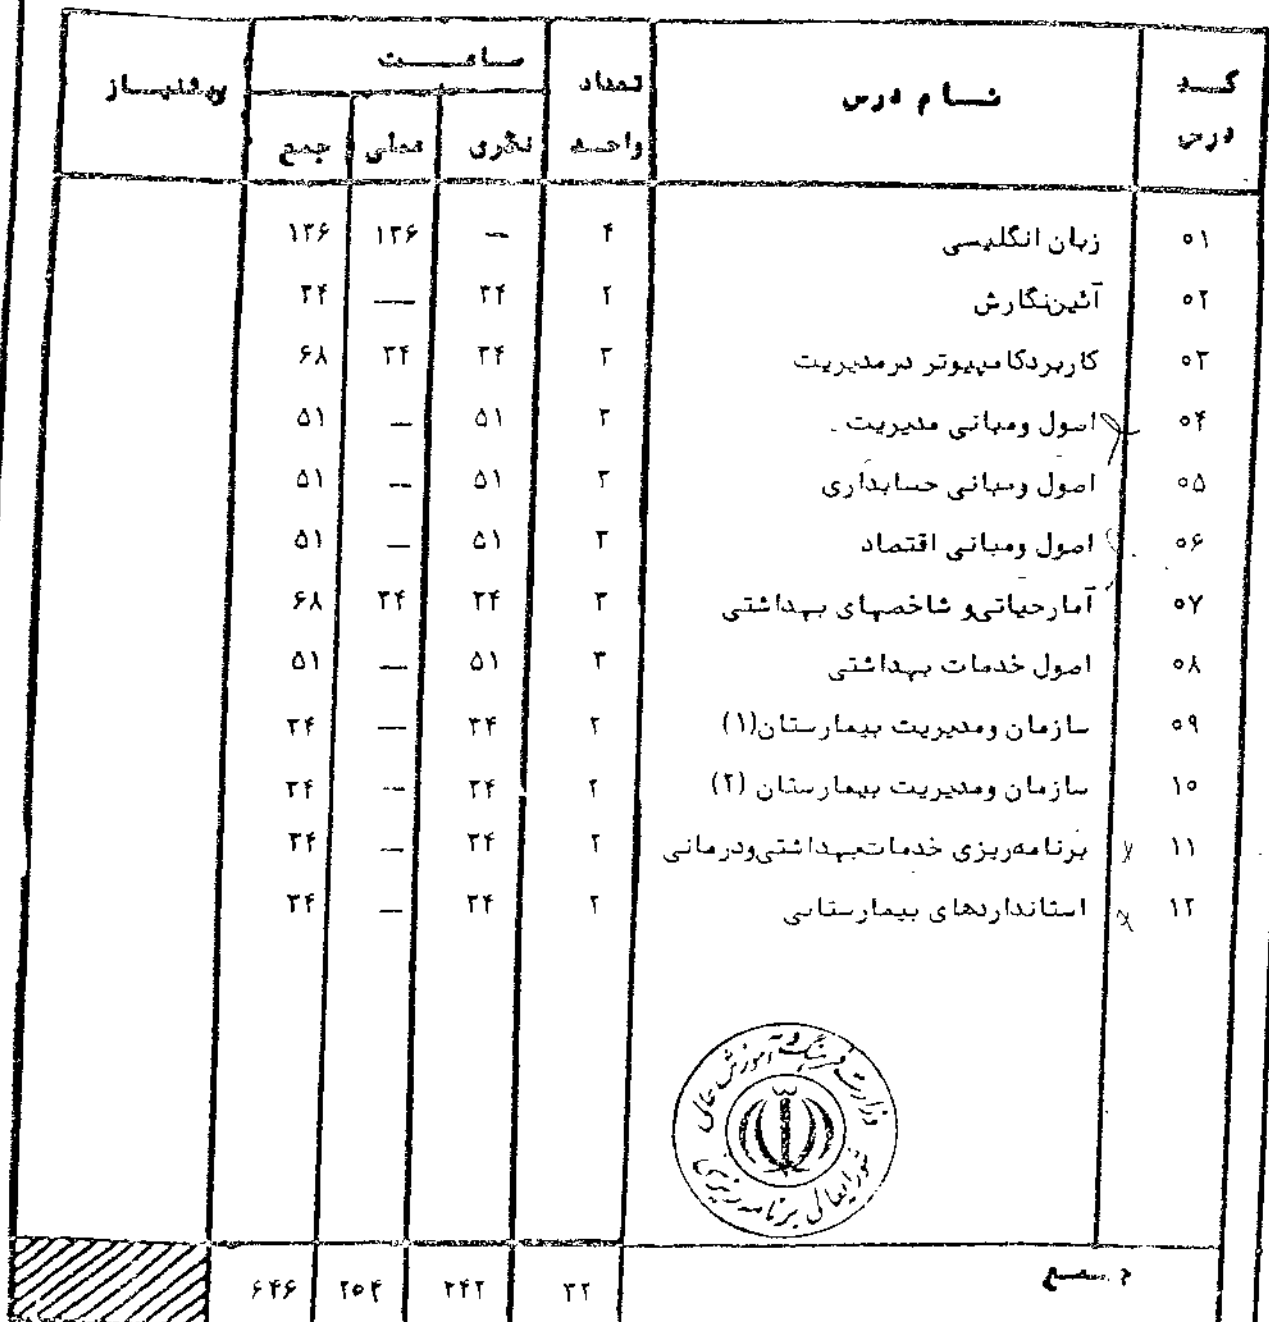 کد درس نام درس تعداد واحد ساعت پیشنیاز
نظری عملی جمع
۰۱ زبان انگلیسی ۴ — ۱۳۶ ۱۳۶
۰۲ آئین‌نگارش ۲ ۳۴ — ۳۴
۰۳ کاربردکامپیوتر درمدیریت ۳ ۳۴ ۳۴ ۶۸
۰۴ اصول ومبانی مدیریت ۳ ۵۱ — ۵۱
۰۵ اصول ومبانی حسابداری ۳ ۵۱ — ۵۱
۰۶ اصول ومبانی اقتصاد ۳ ۵۱ — ۵۱
۰۷ آمارحیاتی‌و شاخصهای بهداشتی ۳ ۳۴ ۳۴ ۶۸
۰۸ اصول خدمات بهداشتی ۳ ۵۱ — ۵۱
۰۹ سازمان ومدیریت بیمارستان(۱) ۲ ۳۴ — ۳۴
۱۰ سازمان ومدیریت بیمارستان (۲) ۲ ۳۴ — ۳۴
۱۱ برنامه‌ریزی خدمات‌بهداشتی‌ودرمانی ۲ ۳۴ — ۳۴
۱۲ استانداردهای بیمارستانی ۲ ۳۴ — ۳۴
وزارت فرهنگ و آموزش عالی
شورایعالی برنامه‌ریزی
جمع ۳۲ ۴۴۲ ۲۰۴ ۶۴۶